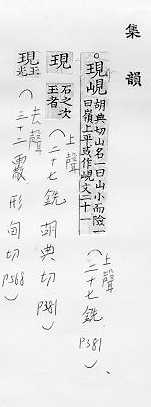 集韻
。現峴胡典切山名一曰山小而險一曰嶺上平或作峴文二十一
(上聲二十七銑,P381)、
現石之次玉者(上聲二十七銑 胡典切 P381)
現玉光(去聲三十二霰 形甸切 P568)